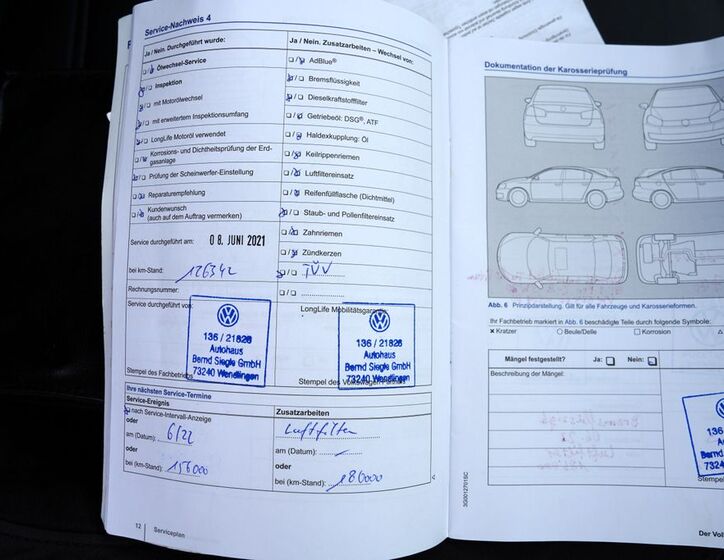 Service-Nachweis 4
Ja / Nein. Durchgeführt wurde:
Ölwechsel-Service
Inspektion
mit Motorölwechsel
mit erweitertem Inspektionsumfang
LongLife Motoröl verwendet
Korrosions- und Dichtheitsprüfung der Erd-
gasanlage
Prüfung der Scheinwerfer-Einstellung
Reparaturempfehlung
Kundenwunsch
(auch auf dem Auftrag vermerken)
Service durchgeführt am: 08. JUNI 2021
bei km-Stand: 126342
Rechnungsnummer:
Service durchgeführt von:
136 / 21826
Autohaus
Bernd Siegle GmbH
73240 Wendlingen
Stempel des Fachbetriebs
Ja / Nein. Zusatzarbeiten – Wechsel von:
AdBlue®
Bremsflüssigkeit
Dieselkraftstofffilter
Getriebeöl: DSG®, ATF
Haldexkupplung: Öl
Keilrippenriemen
Luftfiltereinsatz
Reifenfüllflasche (Dichtmittel)
Staub- und Pollenfiltereinsatz
Zahnriemen
Zündkerzen
TÜV
LongLife Mobilitätsgarantie
136 / 21826
Autohaus
Bernd Siegle GmbH
73240 Wendlingen
Stempel des Volkswagen
Ihre nächsten Service-Termine
Service-Ereignis
nach Service-Intervall-Anzeige
oder
am (Datum): 6/22
oder
bei (km-Stand): 156000
Zusatzarbeiten
Luftfilter
am (Datum):
oder
bei (km-Stand): 180000
12
Serviceplan
Dokumentation der Karosserieprüfung
Abb. 6 Prinzipdarstellung. Gilt für alle Fahrzeuge und Karosserieformen.
Ihr Fachbetrieb markiert in Abb. 6 beschädigte Teile durch folgende Symbole:
x Kratzer
Beule/Delle
Korrosion
Mängel festgestellt?
Ja:
Nein:
Beschreibung der Mängel:
Bernd
73240
Stempel
3G0012701SC